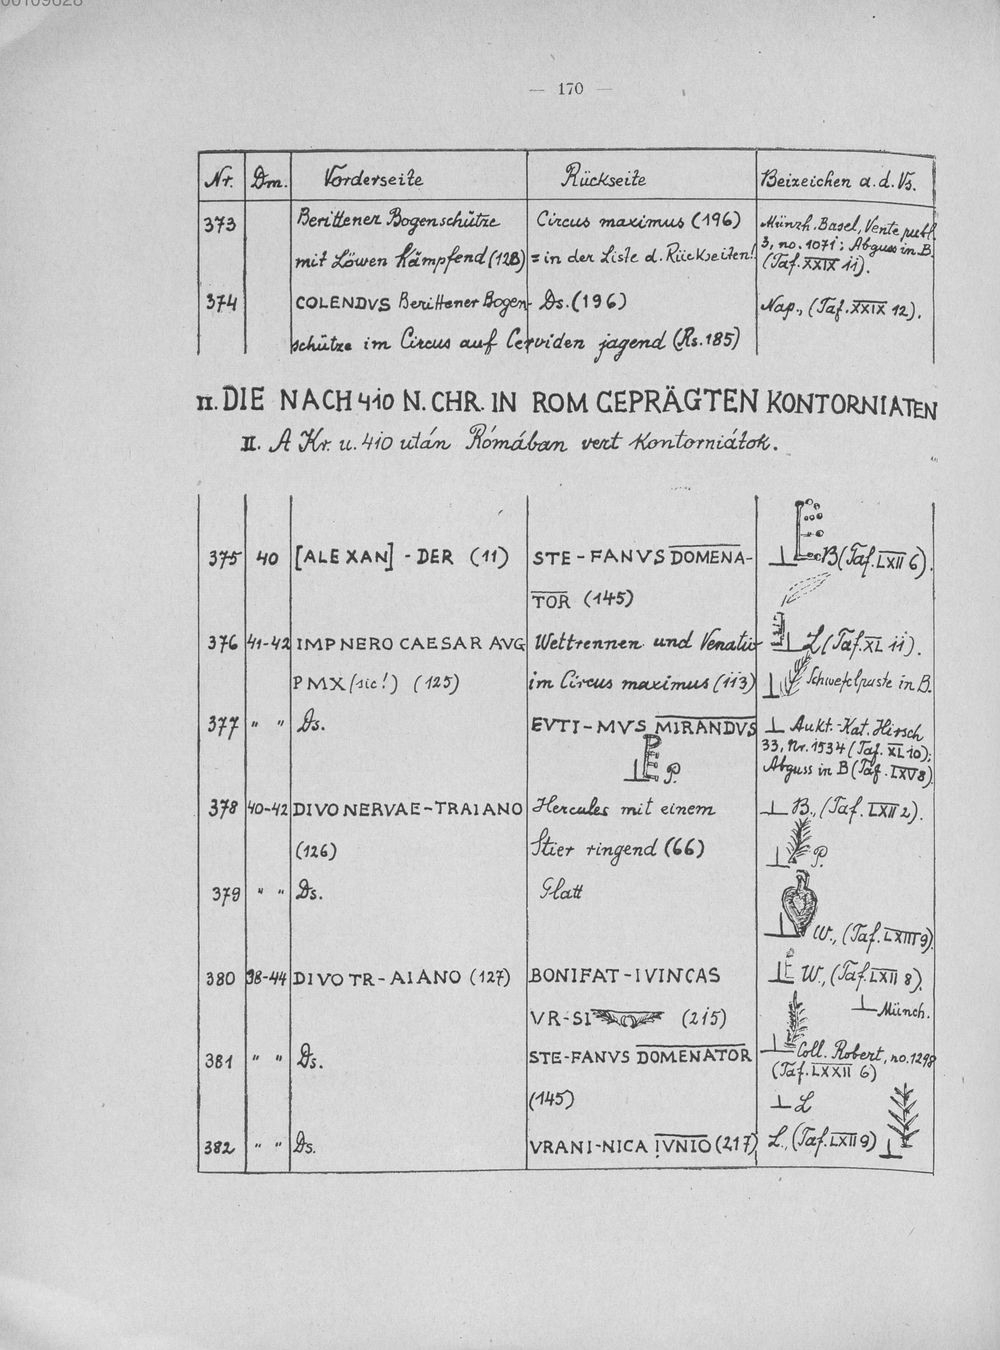 — 170 —
Nr. Dm. Vorderseite Rückseite Beizeichen a. d. Vs.
373 Berittener Bogenschütze Circus maximus (196) Münzh. Basel, Vente publ.
mit Löwen kämpfend (128) = in der Liste d. Rückseiten! 3, no. 1071; Abguss in B.
(Taf. XXIX 11).
374 COLENDVS Berittener Bogen- Ds. (196) Nap., (Taf. XXIX 12).
schütze im Circus auf Cerviden jagend (Rs. 185)
II. DIE NACH 410 N. CHR. IN ROM GEPRÄGTEN KONTORNIATEN
II. A Kr. u. 410 után Rómában vert kontorniátok.
375 40 [ALEXAN] - DER (11) STE - FANVS DOMENA- B (Taf. LXII 6).
TOR (145)
376 41-42 IMP NERO CAESAR AVG Wettrennen und Venatio L (Taf. XL 11).
P M X (sic!) (125) im Circus maximus (113) Schwefelpaste in B.
377 " " Ds. EVTI - MVS MIRANDVS Aukt.-Kat. Hirsch
33, Nr. 1534 (Taf. XL 10);
P. Abguss in B (Taf. LXV 8)
378 40-42 DIVO NERVAE - TRAIANO Hercules mit einem B., (Taf. LXII 2).
(126) Stier ringend (66) P.
379 " " Ds. Glatt
W., (Taf. LXIII 9)
380 38-44 DIVO TR - AIANO (127) BONIFAT - IVINCAS W., (Taf. LXII 8).
VR - SI (215) Münch.
381 " " Ds. STE - FANVS DOMENATOR Coll. Robert, no. 1298
(Taf. LXXII 6)
(145) L
382 " " Ds. VRANI - NICA IVNIO (217) L., (Taf. LXII 9)